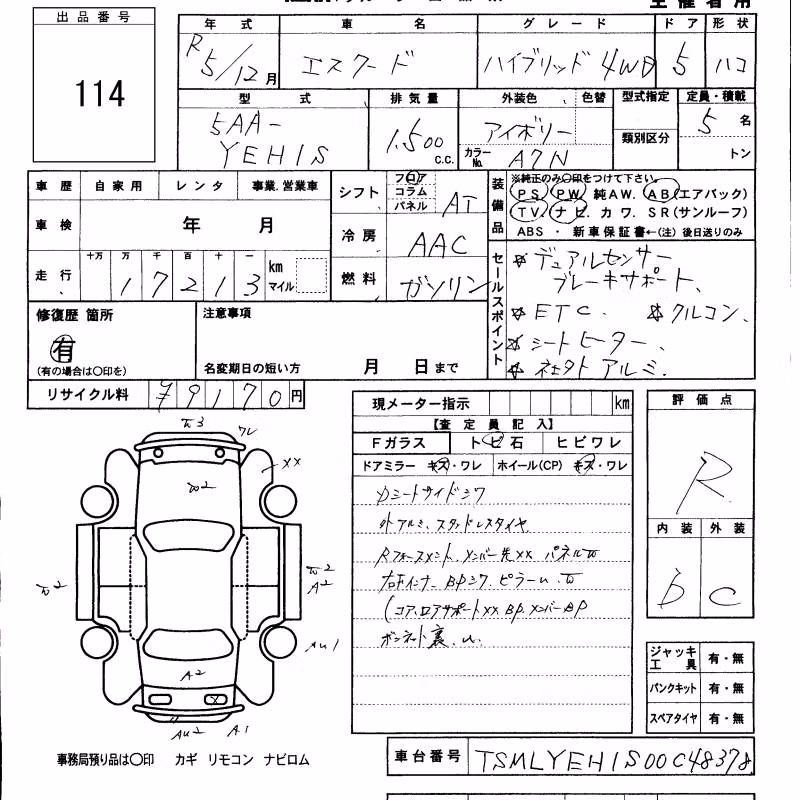 主催者用
出品番号
114
年式 車名 グレード ドア 形状
R5/12月 エスクード ハイブリッド 4WD 5 ハコ
型式 排気量 外装色 色替 型式指定 定員・積載
5AA- 1.500 c.c. アイボリー 類別区分 5 名
YEH1S カラーNo. A7N トン
車歴 自家用 レンタ 事業.営業車
車検 年 月
走行 十万 万 千 百 十 一
1 7 2 1 3 km マイル
シフト フロア コラム パネル AT
冷房 AAC
燃料 ガソリン
装備品 ※純正のみ○印をつけて下さい。
PS. PW. 純AW. AB(エアバック)
TV. ナビ. カワ. SR(サンルーフ)
ABS ・ 新車保証書←(注) 後日送りのみ
セールスポイント
☆ デュアルセンサー
ブレーキサポート、
☆ ETC. ☆ クルコン、
☆ シートヒーター、
☆ 社外アルミ、
修復歴 箇所
有
(有の場合は○印を)
注意事項
名変期日の短い方 月 日まで
リサイクル料 ¥9170円
現メーター指示 km
【査定員記入】
Fガラス トビ石 ヒビワレ
ドアミラー キズ・ワレ ホイール(CP) キズ・ワレ
Dシートサイドシワ
外アルミ、スタッドレスタイヤ
Rフォースメント、メンバー先XX パネルW
右Fインナー BPシワ、ピラーU、W
(コア、ロアサポートXX BP、メンバーBP
ボンネット裏、U、
評価点
R
内装 外装
B C
W3
ワレ
XX
W2
W2
W2
A2
AU1
A2
X
AU2 A1
ジャッキ工具 有・無
パンクキット 有・無
スペアタイヤ 有・無
事務局預り品は○印 カギ リモコン ナビロム
車台番号 TSMLYEH1S00C48378